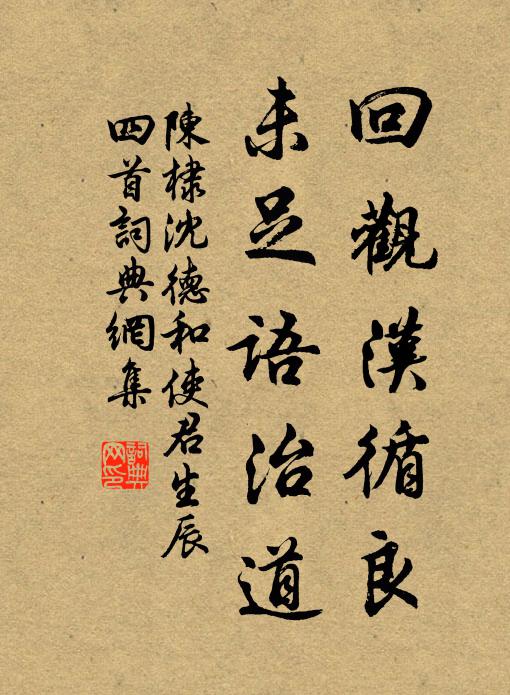 回觀漢循良
未足語治道
陳棣沈德和使君生辰
四首詞典網集
詞典網印